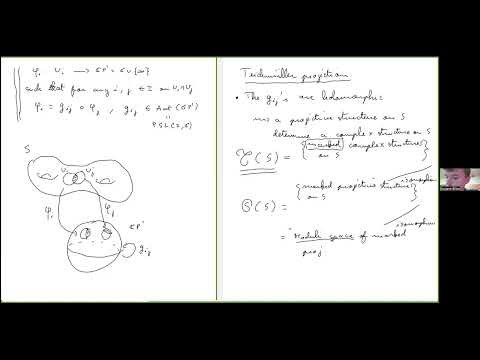 φi Ui → ℂP¹ = ℂ ∪ {∞}
such that for any i, j ∈ I on Ui∩Uj
φi = gij ∘ φj , gij ∈ Aut (ℂP¹)
=
PSL(2,ℂ)
S
Ui Uj
φi φj
ℂP¹
gij
Teichmüller projection
• The gij's are holomorphic
⇝ a projective structure on S
determine a complex structure on S
𝒯(S) = { marked complex structure on S } / isomorphism
𝒫(S) = { marked projective structure on S } / isomorphism
= "Moduli space of marked
proj